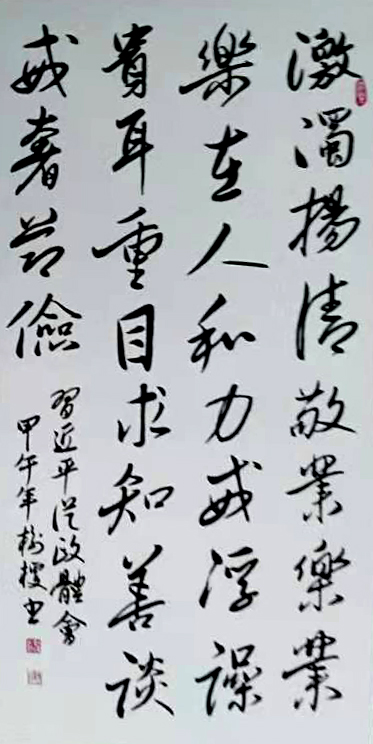 激濁揚清敬業樂業
樂在人和力戒浮躁
貴耳重目求知善談
戒奢節儉
習近平從政體會
甲午年樹楼書